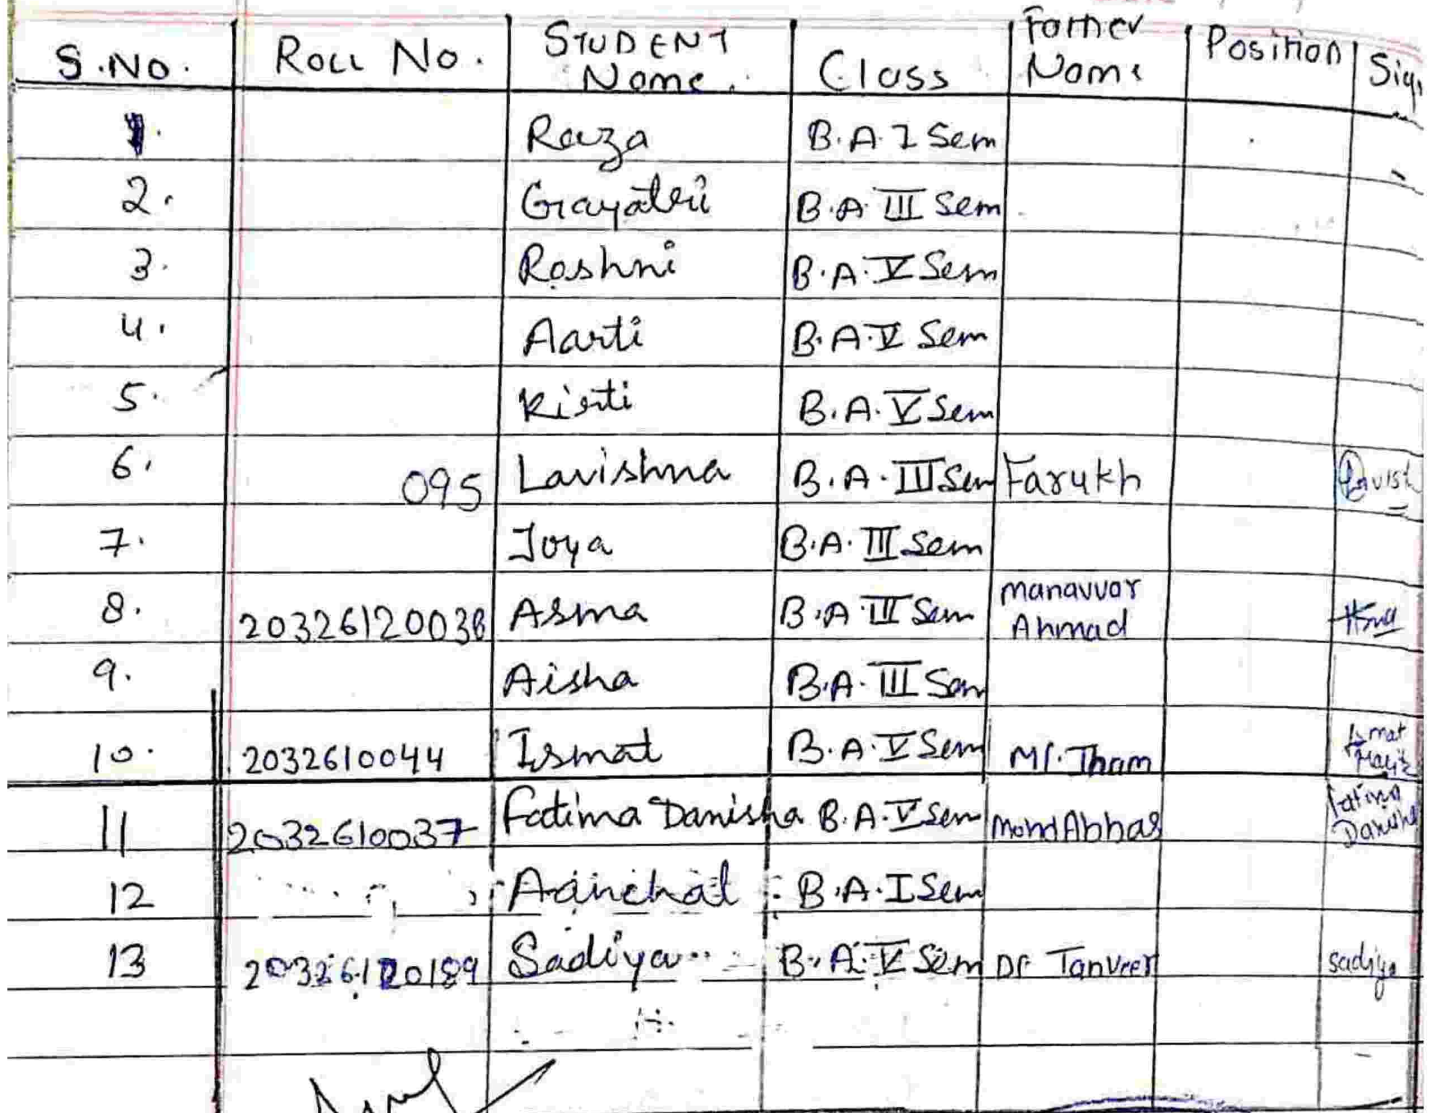 S.No. Roll No. STUDENT Name. Class Father Name Position Sig.
1. Raza B.A. I Sem
2. Gayatri B.A III Sem
3. Roshni B.A. V Sem
4. Aarti B.A. V Sem
5. Kirti B.A. V Sem
6. 095 Lavishna B.A. III Sem Farukh Lavish
7. Joya B.A. III Sem
8. 20326120038 Asma B.A III Sem Manavvar Ahmad
9. Aisha B.A. III Sem
10. 2032610044 Ismat B.A. V Sem Mr. Tham Ismat
11 2032610037 Fatima Danisha B.A. V Sem Mohd Abhas Fatima Danisha
12 Aanchal B.A. I Sem
13 20326120189 Sadiya B.A. V Sem Dr Tanveer sadiya